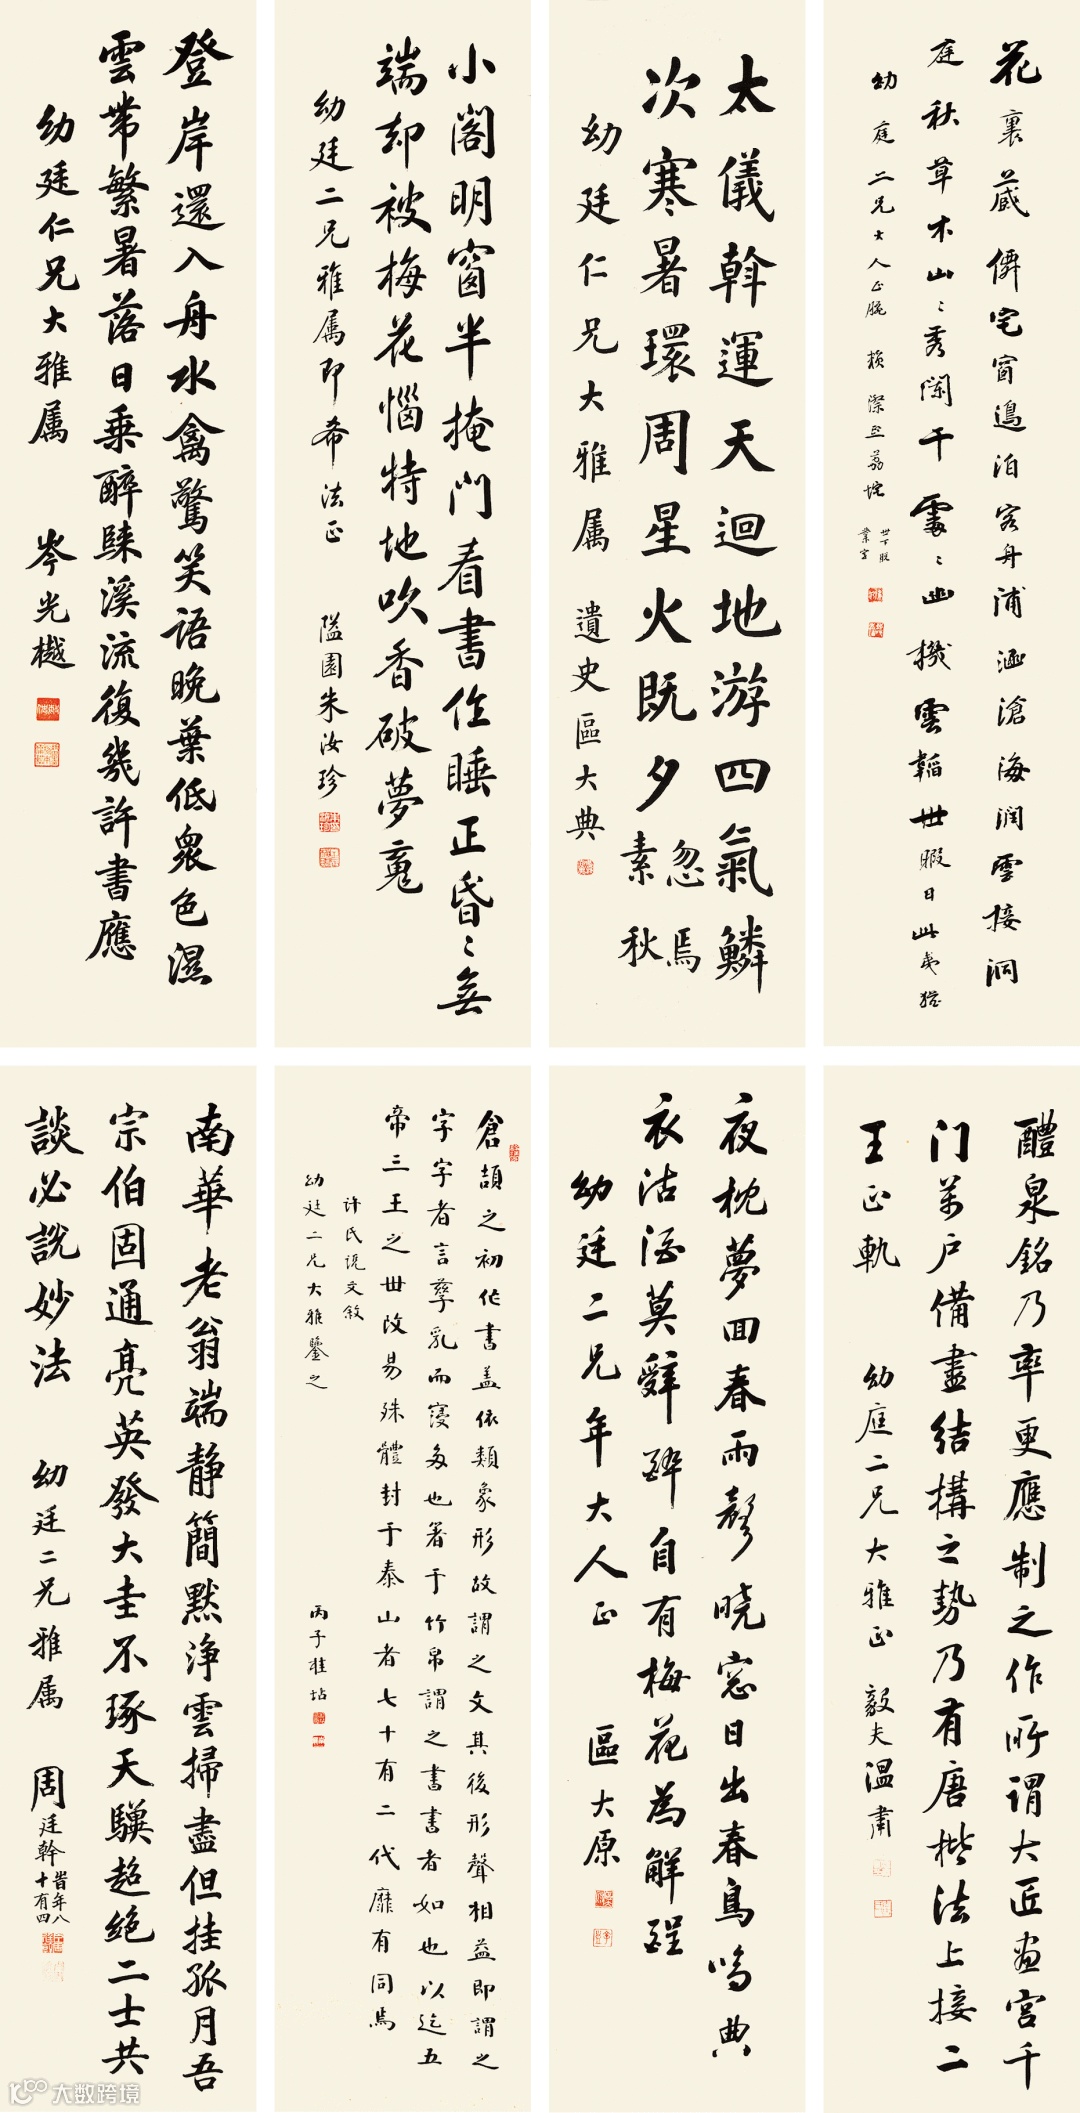 花裏藏僊宅窗邊泊客舟浦涵滄海潤雲接洞
庭秋草木山〻秀闌干處〻幽機雲韜世暇日此夷猶
幼庭二兄大人正腕 賴際熙荔垞
太儀斡運天迴地游四氣鱗
次寒暑環周星火既夕忽焉素秋
幼廷仁兄大雅属 遺史區大典
小閣明窗半掩門看書作睡正昏〻無
端却被梅花惱特地吹香破夢魂
幼廷二兄雅属即希法正 隘園朱汝珍
登岸還入舟水禽驚笑語晚葉低衆色濕
雲帶繁暑落日乘醉歸溪流復幾許書應
幼廷仁兄大雅属 岑光樾
醴泉銘乃率更應制之作所謂大匠畫宮千
门萬户備盡結構之勢乃有唐楷法上接二
王正軌 幼庭二兄大雅正 毅夫温肅
夜枕夢回春雨聲曉窓日出春鳥鳴典
衣沽酒莫辭醉自有梅花為解酲
幼廷二兄年大人正 區大原
倉頡之初作書盖依類象形故謂之文其後形聲相益即謂之
字字者言孳乳而寖多也箸于竹帛謂之書書者如也以迄五
帝三王之世改易殊體封于泰山者七十有二代靡有同焉
许氏说文敘
幼廷二兄大雅鑒之 丙子桂坫
南華老翁端静簡默浄雲掃盡但挂孤月吾
宗伯固通亮英發大圭不琢天驥超绝二士共
談必説妙法 幼廷二兄雅属 周廷幹 旹年八十有四
大数跨境